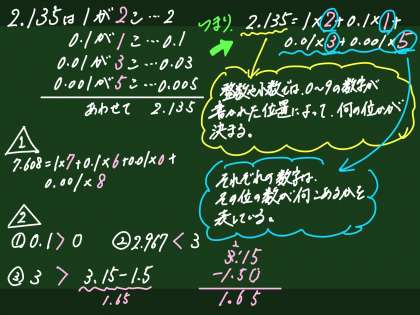 2.135は1が2こ…2
0.1が1こ…0.1
0.01が3こ…0.03
0.001が5こ…0.005
あわせて 2.135
つまり、
2.135=1×2+0.1×1+
0.01×3+0.001×5
整数や小数では、0~9の数字が
書かれた位置によって、何の位かが
決まる。
それぞれの数字は、
その位の数が何こあるかを
表している。
1
7.608=1×7+0.1×6+0.01×0+
0.001×8
2
① 0.1>0 ② 2.967<3
③ 3 > 3.15-1.5
1.65
2
3.15
-1.50
1.65